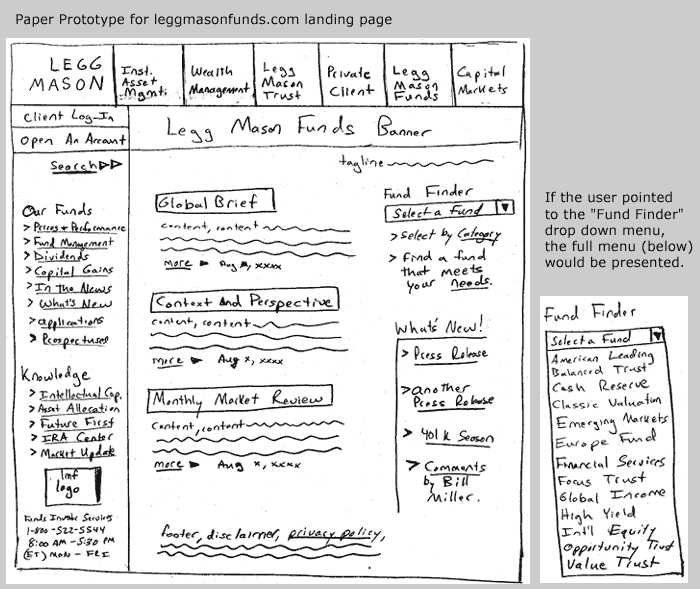 Paper Prototype for leggmasonfunds.com landing page
LEGG
MASON
Inst.
Asset
Mgmt.
Wealth
Management
Legg
Mason
Trust
Private
Client
Legg
Mason
Funds
Capital
Markets
Client Log-In
Open An Account
Legg Mason Funds Banner
Search
tagline
Our Funds
> Prices + Performance
> Fund Mangement
> Dividends
> Capital Gains
> In The News
> What's New
> applications
> Prospectuses
Knowledge
> Intellectual Cap.
> Asset Allocation
> Future First
> IRA Center
> Market Update
lmf
logo
Funds Investor Services
1-800-522-5544
8:00 AM - 5:30 PM
(ET) MON - FRI
Global Brief
content, content
more ► Aug x, xxxx
Context and Perspective
content, content
more ► Aug x, xxxx
Monthly Market Review
content, content
more ► Aug x, xxxx
footer, disclaimer, privacy policy,
Fund Finder
Select a Fund ▼
> Select by Category
> Find a fund
that meets
your needs.
What's New!
> Press Release
> another
Press Release
> 401k Season
> Comments
by Bill
Miller.
If the user pointed
to the "Fund Finder"
drop down menu,
the full menu (below)
would be presented.
Fund Finder
Select a Fund ▼
American Leading
Balanced Trust
Cash Reserve
Classic Valuation
Emerging Markets
Europe Fund
Financial Services
Focus Trust
Global Income
High Yield
Int'l Equity
Opportunity Trust
Value Trust